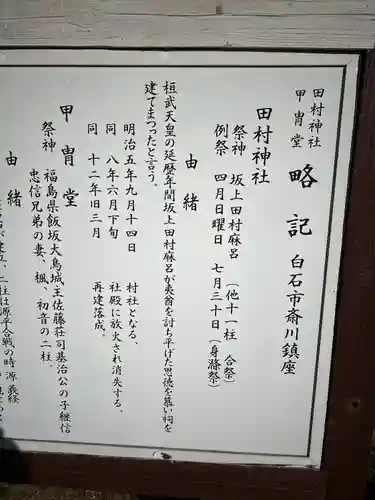 田村神社
甲冑堂
略記 白石市斎川鎮座
田村神社
祭神 坂上田村麻呂 (他十一柱 合祭)
例祭 四月日曜日 七月三十日(身滌祭)
由緒
桓武天皇の延歴年間坂上田村麻呂が夷酋を討ち平げた恩徳を慕い祠を
建てまつったと言う。
明治五年九月十四日 村社となる、
同 八年六月下旬 社殿に放火され消失する、
同 十二年旧三月 再建落成。
甲冑堂
祭神 福島県飯坂大鳥城主佐藤荘司基治公の子継信
忠信兄弟の妻、楓、初音の二柱。
由緒
二柱は源平合戦の時源義経